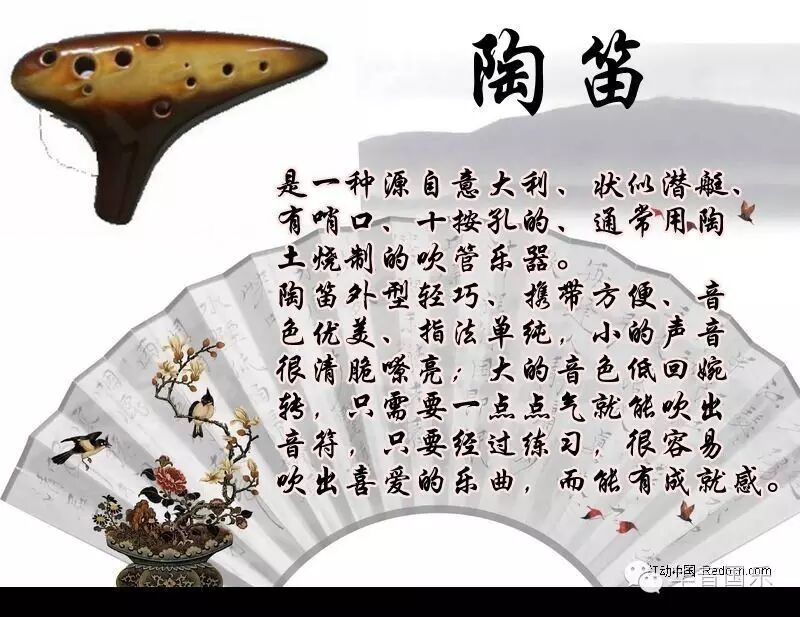 陶笛
是一种源自意大利、状似潜艇、
有哨口、十按孔的、通常用陶
土烧制的吹管乐器。
陶笛外型轻巧、携带方便、音
色优美、指法单纯，小的声音
很清脆嘹亮；大的音色低回婉
转，只需要一点点气就能吹出
音符，只要经过练习，很容易
吹出喜爱的乐曲，而能有成就感。
红动中国 Redocn.com